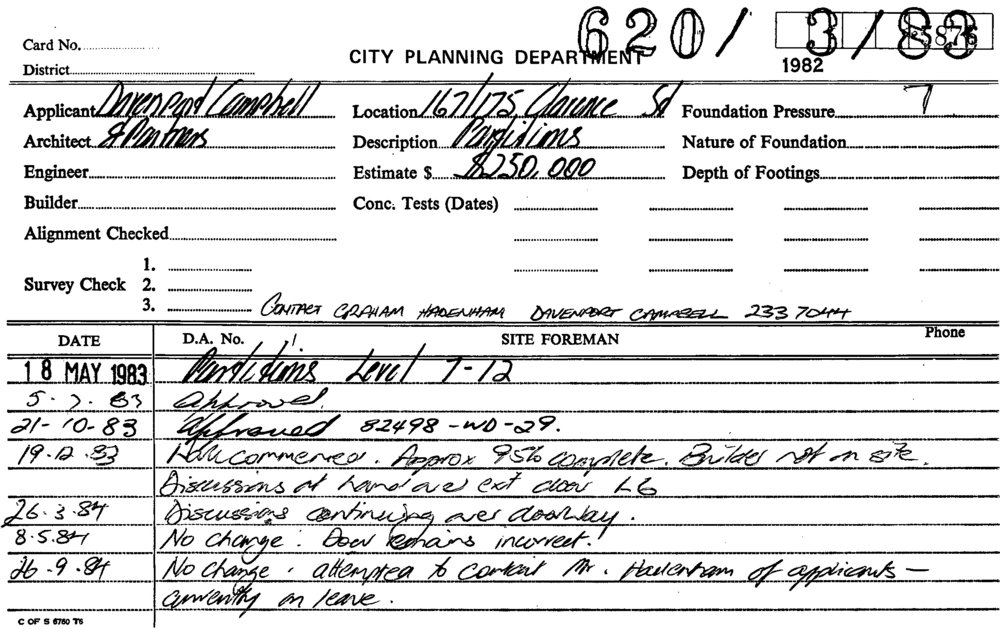 620/ 3/83
Card No.
5876
CITY PLANNING DEPARTMENT
1982
District
Applicant Davenport Campbell Location 167/175 Clarence St Foundation Pressure 7
Architect & Partners Description Partitions Nature of Foundation
Engineer Estimate $ $250,000 Depth of Footings
Builder Conc. Tests (Dates)
Alignment Checked
1.
Survey Check 2.
3. CONTACT GRAHAM HADENHAM DAVENPORT CAMPBELL 233 7044
DATE D.A. No. SITE FOREMAN Phone
18 MAY 1983 Partitions Level 7-12
5.7.83 Approved.
21-10-83 Approved 82498-WD-29.
19.12.83 commenced. Approx 95% complete. Builder not on site.
Discussions at hand over ext door L6
26.3.84 Discussions continuing over doorway.
8.5.84 No change. Door remains incorrect.
26.9.84 No change. attempted to contact Mr. Hadenham of applicants —
currently on leave.
C OF S 6760 T6